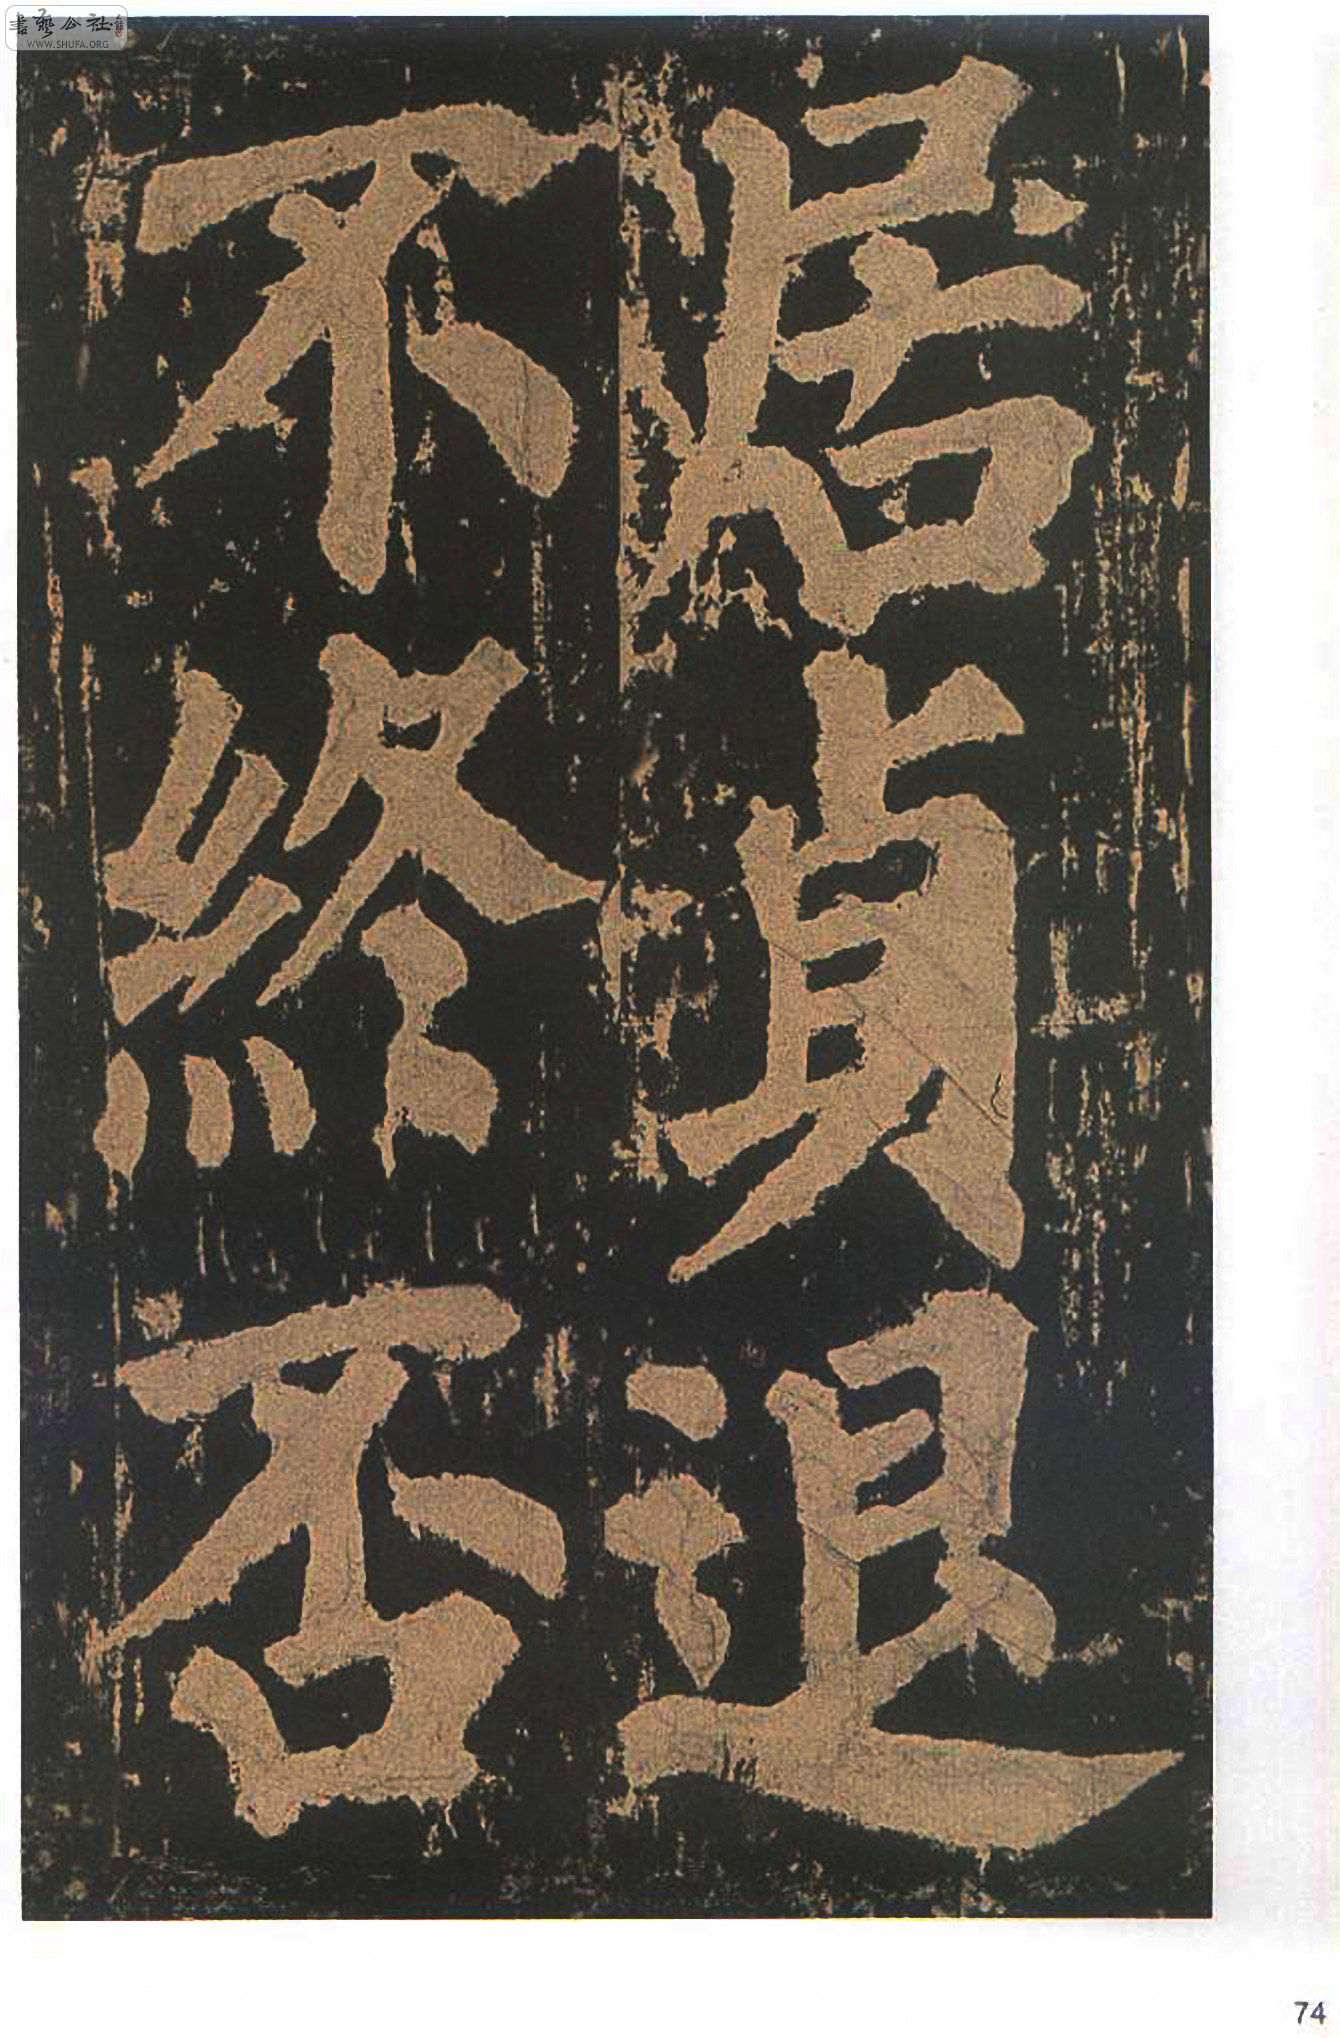 書藝公社
WWW.SHUFA.ORG
居貞退
不終否
74